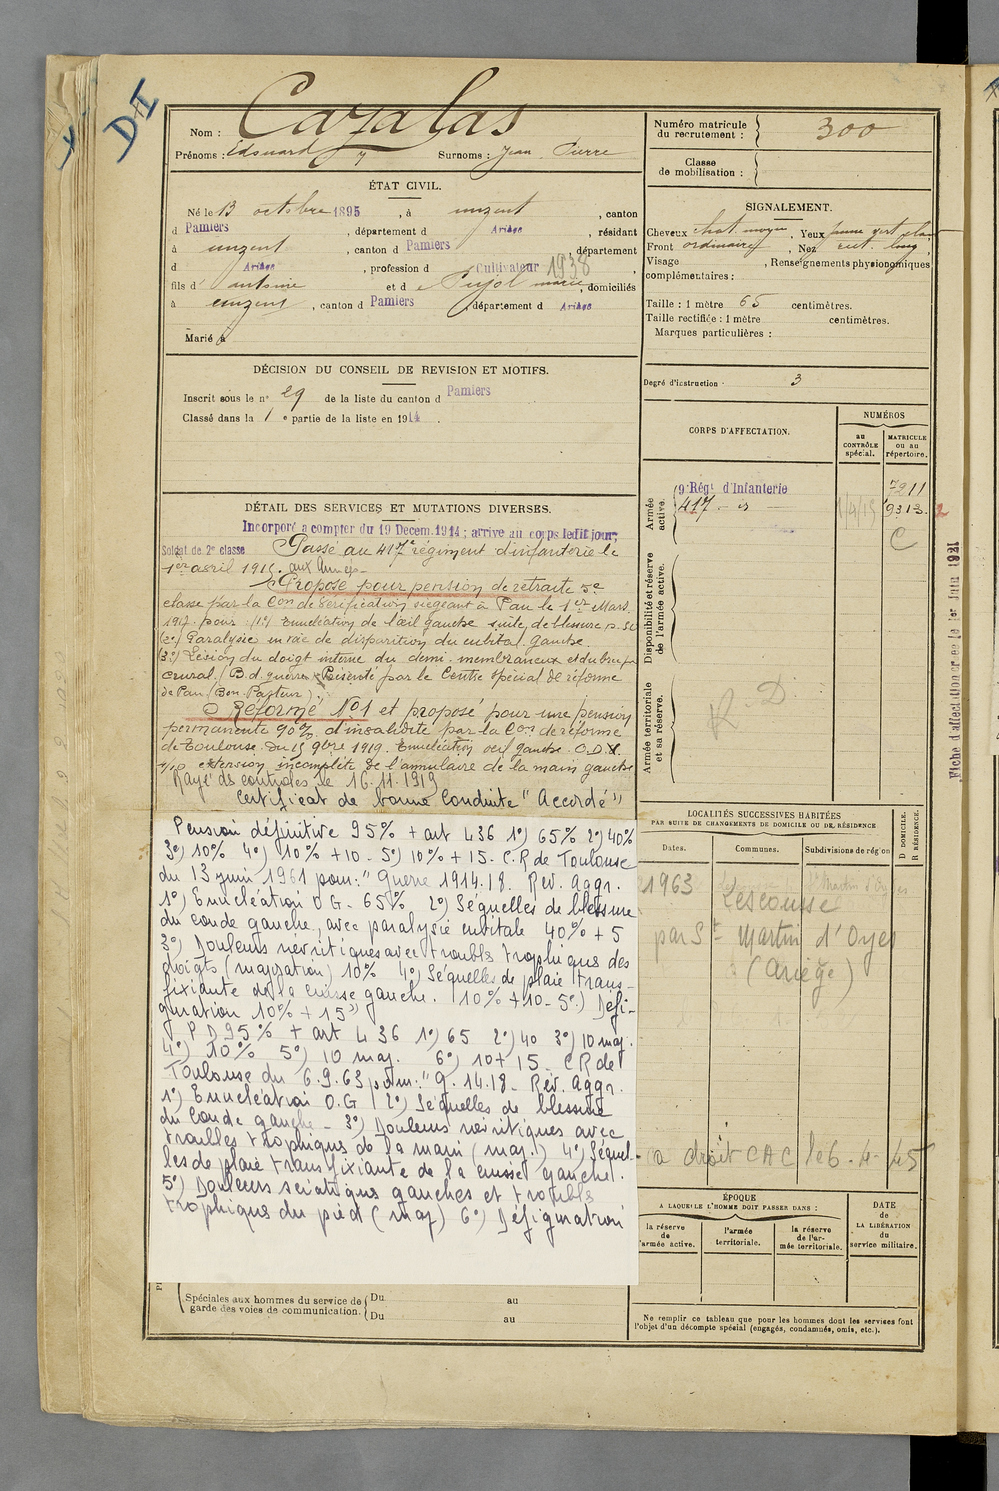 DI
Nom : Cazalas
Prénoms : Edouard Surnoms : Jean Pierre
ÉTAT CIVIL.
Né le 13 octobre 1895, à unzent, canton
d Pamiers, département d Ariège, résidant
à unzent, canton d Pamiers département
d Ariège, profession d Cultivateur 1938,
fils d' antoine et d Pujol marie, domiciliés
à unzent, canton d Pamiers, département d Ariège
Marié à
DÉCISION DU CONSEIL DE REVISION ET MOTIFS.
Inscrit sous le nº 29 de la liste du canton d Pamiers
Classé dans la 1 e partie de la liste en 1914.
DÉTAIL DES SERVICES ET MUTATIONS DIVERSES.
Incorporé a compter du 19 Decem. 1914; arrive au corps ledit jour;
Soldat de 2e classe Passé au 417e régiment d'infanterie le
1er avril 1915. aux Armées
Proposé pour pension de retraite 5e
classe par la Con de Vérification siégeant à Pau le 1er Mars
1917. pour : (1º) Enucléation de l'œil gauche suite de blessure
(2º) Paralysie en voie de disparition du cubital gauche
(3º) Lésion du doigt interne du demi-membraneux et du
crural. (B d. guerre) Présenté par le Centre spécial de réforme
de Pau (Bon-Pasteur)
Réformé Nº1 et proposé pour une pension
permanente 90% d'invalidité par la Con de réforme
de Toulouse du 15 9bre 1919. Enucléation oeil gauche.
extension incomplète de l'annulaire de la main gauche
Rayé des contrôles le 16.11.1919
Certificat de bonne Conduite "Accordé"
Pension définitive 95% + art L 36 1º) 65% 2º) 40%
3º) 10% 4º) 10% + 10 - 5º) 10% + 15. C.R de Toulouse
du 13 juin 1961 pour: " Guerre 1914.18. Rév. Aggr.
1º) Enucléation O G - 65% 2º) Séquelles de blessure
du coude gauche, avec paralysie cubitale 40% + 5
3º) Douleurs névritiques avec troubles trophiques des
doigts (majoration) 10% 4º) Séquelles de plaie trans-
fixiante de la cuisse gauche. 10% + 10 - 5º) Défi-
guration 10% + 15"
P D 95% + art L 36 1º) 65 2º) 40 3º) 10 maj.
4º) 10% 5º) 10 maj. 6º) 10 + 15 - C R de
Toulouse du 6.9.63 pour: " G. 14.18 - Rév. Aggr.
1º) Enucléation O.G 2º) Séquelles de blessure
du Coude gauche - 3º) Douleurs névritiques avec
troubles trophiques de la main (maj.) 4º) Séquel-
les de plaie transfixiante de la cuisse gauche.
5º) Douleurs sciatiques gauches et troubles
trophiques du pied (maj) 6º) Défiguration
Spéciales aux hommes du service de
garde des voies de communication.
Du au
Du au
Numéro matricule
du recrutement : 300
Classe
de mobilisation :
SIGNALEMENT.
Cheveux chat. moyen, Yeux jaune vert clair
Front ordinaire, Nez rect. long
Visage , Renseignements physionomiques
complémentaires :
Taille : 1 mètre 65 centimètres.
Taille rectifiée : 1 mètre centimètres.
Marques particulières :
Degré d'instruction : 3
CORPS D'AFFECTATION.
NUMÉROS
au
CONTRÔLE
spécial.
MATRICULE
ou au
répertoire.
Armée
active.
9e Régt d'Infanterie 7211
417 - d 1/4/15 9313 2
C
Disponibilité et réserve
de l'armée active.
Armée territoriale
et sa réserve.
R. D.
Fiche d'affectation créée le 1er Juin 1921
LOCALITÉS SUCCESSIVES HABITÉES
PAR SUITE DE CHANGEMENTS DE DOMICILE OU DE RÉSIDENCE
D DOMICILE.
R RÉSIDENCE.
Dates.
Communes.
Subdivisions de région
1963 Lescousse
par St Martin d'Oyes
(Ariège)
a droit CAC le 6 - 4 - 45
ÉPOQUE
A LAQUELLE L'HOMME DOIT PASSER DANS :
la réserve
de
l'armée active.
l'armée
territoriale.
la réserve
de l'ar-
mée territoriale.
DATE
de
LA LIBÉRATION
du
service militaire.
Ne remplir ce tableau que pour les hommes dont les services font
l'objet d'un décompte spécial (engagés, condamnés, omis, etc.).